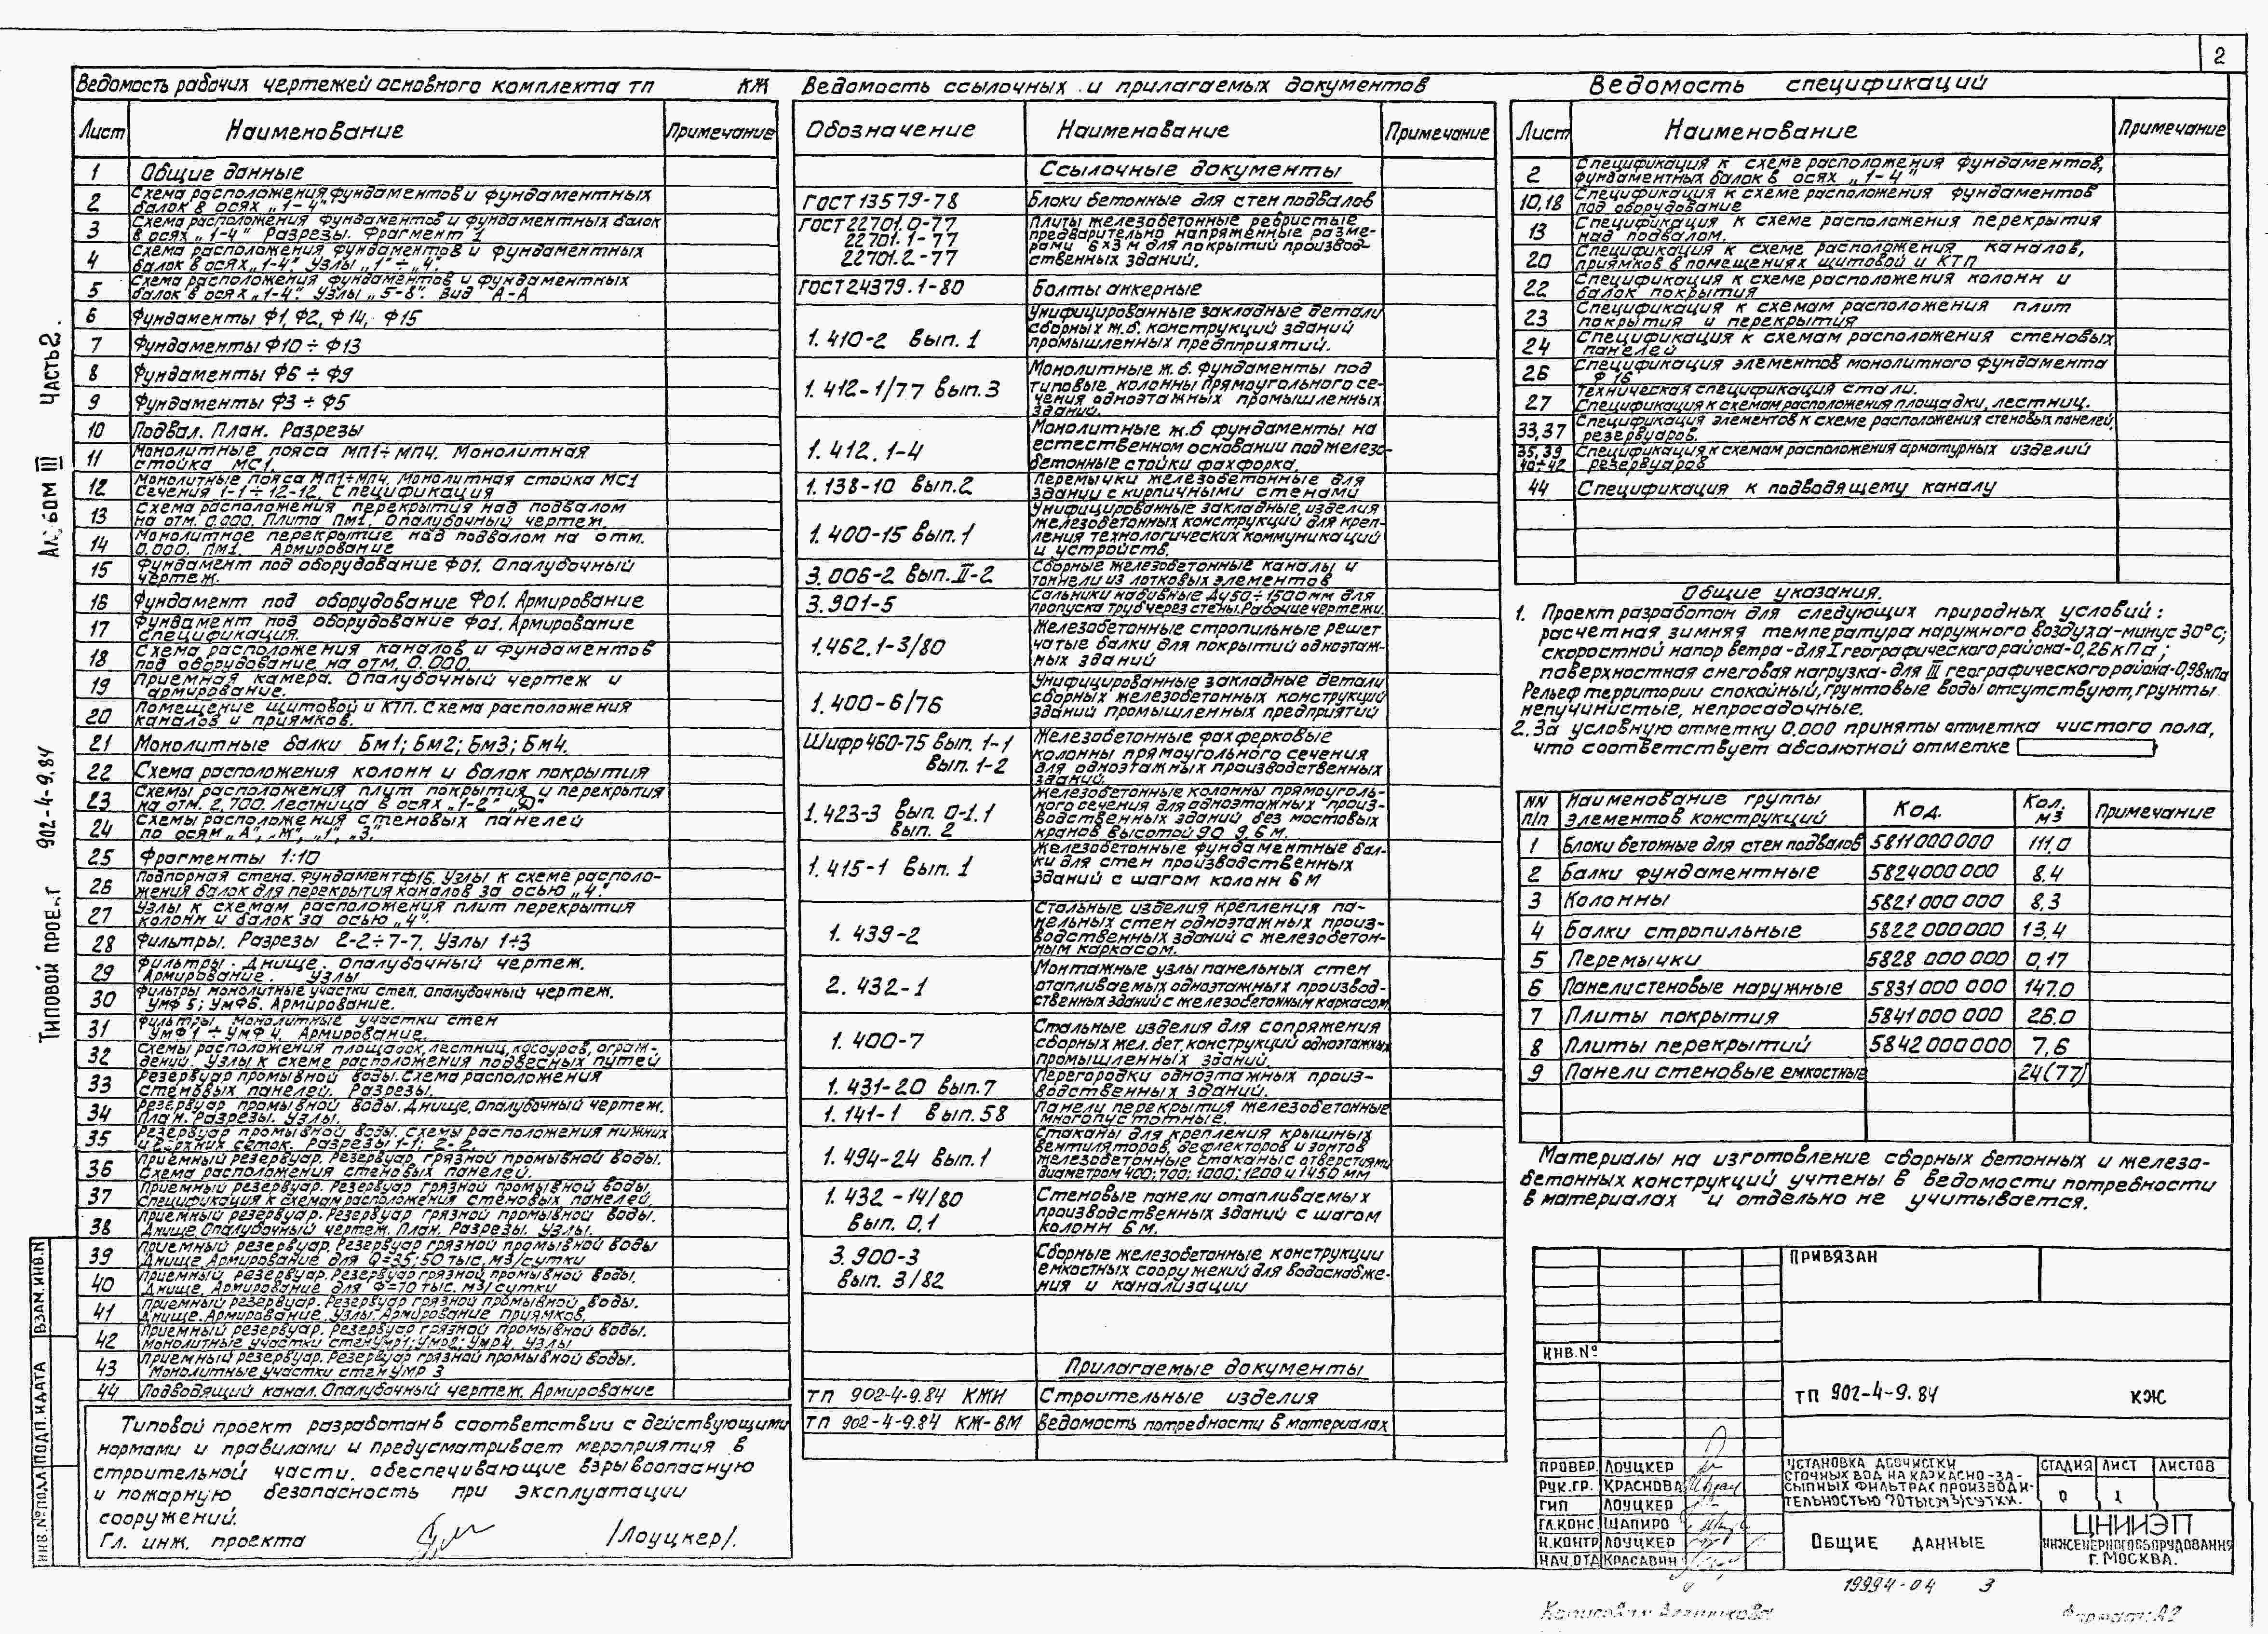 2
Ведомость рабочих чертежей основного комплекта тп КЖ
Лист Наименование Примечание
1 Общие данные
2 Схема расположения фундаментов и фундаментных
балок в осях „1-4"
3 Схема расположения фундаментов и фундаментных балок
в осях „1-4" Разрезы. Фрагмент 1
4 Схема расположения фундаментов и фундаментных
балок в осях „1-4". Узлы „1"÷„4".
5 Схема расположения фундаментов и фундаментных
балок в осях „1-4". Узлы „5-8". Вид "А-А
6 Фундаменты Ф1, Ф2, Ф14, Ф15
7 Фундаменты Ф10÷Ф13
8 Фундаменты Ф6÷Ф9
9 Фундаменты Ф3÷Ф5
10 Подвал. План. Разрезы
11 Монолитные пояса МП1÷МП4. Монолитная
стойка МС1.
12 Монолитные пояса МП1÷МП4. Монолитная стойка МС1
Сечения 1-1÷12-12. Спецификация
13 Схема расположения перекрытия над подвалом
на отм. 0.000. Плита Пм1. Опалубочный чертеж.
14 Монолитное перекрытие над подвалом на отм.
0.000. Пм1. Армирование
15 Фундамент под оборудование Ф01. Опалубочный
чертеж.
16 Фундамент под оборудование Ф01. Армирование
17 Фундамент под оборудование Ф01. Армирование
Спецификация.
18 Схема расположения каналов и фундаментов
под оборудование на отм. 0.000.
19 Приемная камера. Опалубочный чертеж и
армирование.
20 Помещение щитовой и КТП. Схема расположения
каналов и приямков.
21 Монолитные балки Бм1; Бм2; Бм3; Бм4.
22 Схема расположения колонн и балок покрытия
23 Схемы расположения плит покрытия и перекрытия
на отм. 2.700. Лестница в осях „1-2" „Д"
24 Схемы расположения стеновых панелей
по осям „А", „Ж", „1", „3".
25 Фрагменты 1:10
26 Подпорная стена. Фундамент Ф16. Узлы к схеме располо-
жения балок для перекрытия каналов за осью „4."
27 Узлы к схемам расположения плит перекрытия
колонн и балок за осью „4".
28 Фильтры. Разрезы 2-2÷7-7. Узлы 1÷3
29 Фильтры. Днище. Опалубочный чертеж.
Армирование. Узлы
30 Фильтры монолитные участки стен. Опалубочный чертеж.
УмФ5; УмФ6. Армирование.
31 Фильтры. монолитные участки стен
УмФ1÷УмФ4. Армирование.
32 Схемы расположения площадок, лестниц, косоуров, ограж-
дений. Узлы к схеме расположения подвесных путей
33 Резервуар промывной воды. Схема расположения
стеновых панелей. Разрезы.
34 Резервуар промывной воды. Днище. Опалубочный чертеж.
План. Разрезы. Узлы.
35 Резервуар промывной воды. Схемы расположения нижних
и верхних сеток. Разрезы 1-1; 2-2.
36 Приемный резервуар. Резервуар грязной промывной воды.
Схема расположения стеновых панелей.
37 Приемный резервуар. Резервуар грязной промывной воды.
Спецификация к схемам расположения стеновых панелей.
38 Приемный резервуар. Резервуар грязной промывной воды.
Днище. Опалубочный чертеж. План. Разрезы. Узлы.
39 Приемный резервуар. Резервуар грязной промывной воды
Днище. Армирование для Q=35;50 тыс. м3/сутки
40 Приемный резервуар. Резервуар грязной промывной воды.
Днище. Армирование для Ф=70 тыс. м3/сутки
41 Приемный резервуар. Резервуар грязной промывной воды.
Днище. Армирование. Узлы. Армирование приямков.
42 Приемный резервуар. Резервуар грязной промывной воды.
Монолитные участки стен Умр1; Умр2; Умр4. Узлы
43 Приемный резервуар. Резервуар грязной промывной воды.
Монолитные участки стен Умр 3
44 Подводящий канал. Опалубочный чертеж. Армирование
Типовой проект разработан в соответствии с действующими
нормами и правилами и предусматривает мероприятия в
строительной части, обеспечивающие взрывоопасную
и пожарную безопасность при эксплуатации
сооружений.
Гл. инж. проекта /Лоуцкер/.
Ведомость ссылочных и прилагаемых документов
Обозначение Наименование Примечание
Ссылочные документы
ГОСТ 13579-78 Блоки бетонные для стен подвалов
ГОСТ 22701.0-77 Плиты железобетонные ребристые
22701.1-77 предварительно напряженные разме-
22701.2-77 рами 6×3 м для покрытий производ-
ственных зданий.
ГОСТ 24379.1-80 Болты анкерные
1.410-2 вып. 1 Унифицированные закладные детали
сборных ж.б. конструкций зданий
промышленных предпприятий.
1.412-1/77 вып. 3 Монолитные ж.б. фундаменты под
типовые колонны прямоугольного се-
чения одноэтажных промышленных
зданий.
1.412.1-4 Монолитные ж.б фундаменты на
естественном основании под железо-
бетонные стойки фахфорка.
1.138-10 вып.2 Перемычки железобетонные для
здании с кирпичными стенами
1.400-15 вып.1 Унифицированные закладные изделия
железобетонных конструкций для креп-
ления технологических коммуникаций
и устройств.
3.006-2 вып.II-2 Сборные железобетонные каналы и
тоннели из лотковых элементов
3.901-5 Сальники набивные Ду50÷1500мм для
пропуска труб через стены. Рабочие чертежи.
1.462.1-3/80 Железобетонные стропильные решет
чатые балки для покрытий одноэтаж-
ных зданий
1.400-6/76 Унифицированные закладные детали
сборных железобетонных конструкций
зданий промышленных предприятий
Шифр 460-75 вып. 1-1 Железобетонные фахферковые
вып. 1-2 колонны прямоугольного сечения
для одноэтажных производственных
зданий.
1.423-3 вып. 0-1.1 Железобетонные колонны прямоуголь-
вып. 2 ного сечения для одноэтажных произ-
водственных зданий без мостовых
кранов высотой 90 9,6 м.
1.415-1 вып. 1 Железобетонные фундаментные бал-
ки для стен производственных
зданий с шагом колонн 6 м
1.439-2 Стальные изделия крепления па-
нельных стен одноэтажных произ-
водственных зданий с железобетон-
ным каркасом.
2.432-1 Монтажные узлы панельных стен
отапливаемых одноэтажных производ-
ственных зданий с железобетонным каркасом
1.400-7 Стальные изделия для сопряжения
сборных жел. бет. конструкций одноэтажных
промышленных зданий.
1.431-20 вып.7 Перегородки одноэтажных произ-
водственных зданий.
1.141-1 вып.58 Панели перекрытия железобетонные
многопустотные.
1.494-24 вып.1 Стаканы для крепления крышных
вентиляторов, дефлекторов и зонтов
железобетонные стаканы с отверстиями
диаметром 400; 700; 1000; 1200 и 1450 мм
1.432-14/80 Стеновые панели отапливаемых
вып. 0,1 производственных зданий с шагом
колонн 6 м.
3.900-3 Сборные железобетонные конструкции
вып. 3/82 емкостных сооружений для водоснабже-
ния и канализации
Прилагаемые документы
тп 902-4-9.84 КЖИ Строительные изделия
тп 902-4-9.84 КЖ-ВМ Ведомость потребности в материалах
Ведомость спецификаций
Лист Наименование Примечание
2 Спецификация к схеме расположения фундаментов,
фундаментных балок в осях „1-4"
10,18 Спецификация к схеме расположения фундаментов
под оборудование
13 Спецификация к схеме расположения перекрытия
над подвалом.
20 Спецификация к схеме расположения каналов,
приямков в помещениях щитовой и КТП
22 Спецификация к схеме расположения колонн и
балок покрытия
23 Спецификация к схемам расположения плит
покрытия и перекрытия
24 Спецификация к схемам расположения стеновых
панелей
26 Спецификация элементов монолитного фундамента
Ф 16
27 Техническая спецификация стали.
Спецификация к схемам расположения площадки, лестниц.
33,37 Спецификация элементов к схеме расположения стеновых панелей,
резервуаров.
35,39 Спецификация к схемам расположения арматурных изделий
40÷42 резервуаров
44 Спецификация к подводящему каналу
Общие указания.
1. Проект разработан для следующих природных условий:
расчетная зимняя температура наружного воздуха-минус 30°С;
скоростной напор ветра-для I географического района-0,26кПа;
поверхностная снеговая нагрузка-для III географического района-0,98кПа
Рельеф территории спокойный, грунтовые воды отсутствуют, грунты
непучинистые, непросадочные.
2. За условную отметку 0.000 приняты отметка чистого пола,
что соответствует абсолютной отметке
NN п/п Наименование группы элементов конструкций Код. Кол. м3 Примечание
1 Блоки бетонные для стен подвалов 5811000000 111.0
2 Балки фундаментные 5824000000 8.4
3 Колонны 5821000000 8,3
4 Балки стропильные 5822000000 13,4
5 Перемычки 5828 000 000 0,17
6 Панели стеновые наружные 5831000 000 147.0
7 Плиты покрытия 5841000 000 26.0
8 Плиты перекрытий 5842000000 7,6
9 Панели стеновые емкостные 24(77)
Материалы на изготовление сборных бетонных и железо-
бетонных конструкций учтены в ведомости потребности
в материалах и отдельно не учитывается.
ПРИВЯЗАН
ИНВ.№
ТП 902-4-9.84 КЖ
ПРОВЕР. ЛОУЦКЕР
РУК.ГР. КРАСНОВА
ГИП ЛОУЦКЕР
ГЛ.КОНС. ШАПИРО
Н.КОНТР ЛОУЦКЕР
НАЧ.ОТД КРАСАВИН
УСТАНОВКА ДООЧИСТКИ
СТОЧНЫХ ВОД НА КАРКАСНО-ЗА-
СЫПНЫХ ФИЛЬТРАХ ПРОИЗВОДИ-
ТЕЛЬНОСТЬЮ 70 ТЫС М3/СУТКИ.
СТАДИЯ ЛИСТ ЛИСТОВ
0 1
ОБЩИЕ ДАННЫЕ
ЦНИИЭП
ИНЖЕНЕРНОГО ОБОРУДОВАНИЯ
Г. МОСКВА.
19994-04 3
Формат: А2
ТИПОВОЙ ПРОЕКТ 902-4-9.84 АЛЬБОМ III ЧАСТЬ 2.
ИНВ.№ ПОДЛ. ПОДП. И ДАТА ВЗАМ. ИНВ. N